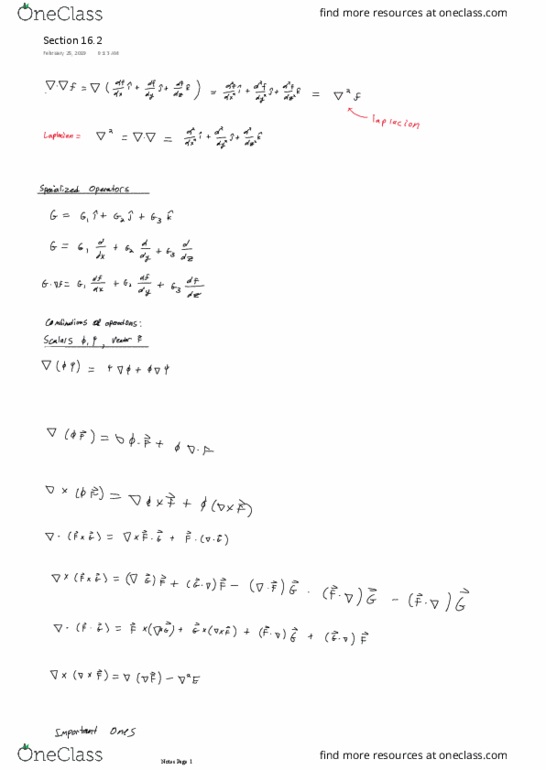 OneClass find more resources at oneclass.com
Section 16.2
∇·∇f = ∇ ( df/dx î + df/dy ĵ + df/dz k̂ ) = d²f/dx² î + d²f/dy² ĵ + d²f/dz² k̂ = ∇² f
laplacian
Laplacian = ∇² = ∇·∇ = d²/dx² î + d²/dy² ĵ + d²/dz² k̂
Specialized Operators
G = G₁ î + G₂ ĵ + G₃ k̂
G = G₁ d/dx + G₂ d/dy + G₃ d/dz
G·∇f = G₁ df/dx + G₂ df/dy + G₃ df/dz
Combinations of operators:
Scalars ϕ, φ, vector F
∇ (ϕ φ) = φ ∇ϕ + ϕ ∇φ
∇ (ϕ F⃗) = ∇ϕ·F⃗ + ϕ ∇·F
∇ × (ϕ F⃗) = ∇ϕ × F⃗ + ϕ (∇×F⃗)
∇· (F⃗×G⃗) = ∇×F⃗·G⃗ + F⃗·(∇·G⃗)
∇× (F⃗×G⃗) = (∇ G⃗) F⃗ + (G⃗·∇) F⃗ − (∇·F⃗) G⃗ · (F⃗·∇) G⃗ − (F⃗·∇) G⃗
∇· (F⃗·G⃗) = F⃗ ×(∇×G⃗) + G⃗ ×(∇×F⃗) + (F⃗·∇) G⃗ + (G⃗·∇) F⃗
∇× (∇×F⃗) = ∇ (∇F⃗) − ∇²F
Important Ones
Notes Page 1
OneClass find more resources at oneclass.com